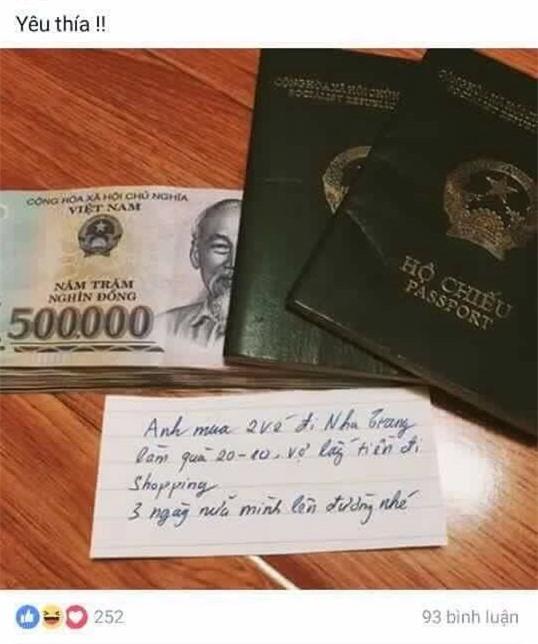 Yêu thía !!
CỘNG HÒA XÃ HỘI CHỦ NGHĨA
VIỆT NAM
NĂM TRĂM
NGHÌN ĐỒNG
500.000
CỘNG HÒA XÃ HỘI CHỦ
SOCIALIST REPUBLIC
CỘNG HÒA XÃ HỘI CHỦ
SOCIALIST REPUBLIC
HỘ CHIẾU
PASSPORT
Anh mua 2 vé đi Nha Trang
làm quà 20-10. Vợ lấy tiền đi
Shopping
3 ngày nữa mình lên đường nhé
252
93 bình luận